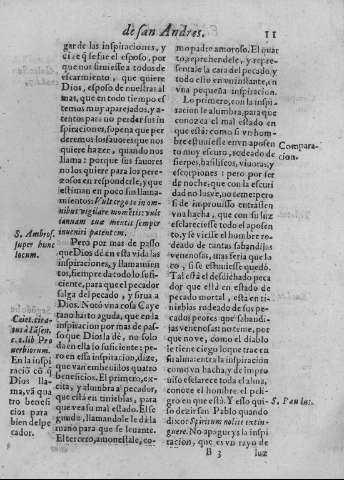 de san Andres. 11
gar de las inspiraciones, y
se fue el esposo, por
que nos siruiesse a todos de
escarmiento, que quiere
Dios, esposo de nuestras al
mas, que en todo tiempo es
temos muy aparejados, y a-
tentos para no perder sus in
spiraciones, so pena que per
deremos los fauores que nos
quiere hazer, quando nos
llama: porque sus fauores
no los quiere para los pere-
zosos en responderle, y que
estiman en poco sin llama-
mientos: Vult ergo te in om-
nibus vigilare momētis: vult
ianuam tuæ mentis semper
inueniri patentem.
Pero por mas de passo
que Dios dè en esta vida las
inspiraciones, y llamamien
tos, siempre da todo lo sufi-
ciente, para que el pecador
salga del pecado, y sirua a
Dios. Notò vna cosa Caye
tano harto aguda, que en la
inspiracion por mas de pas-
so que Dios la dè, no solo
dà en ella lo suficiente: pe-
ro en essa inspiracion, dize,
que van embeuidos quatro
beneficios. El primero, ex-
cita, y alumbra al pecador,
que està en tinieblas, para
que vea su mal estado. El se
gundo, llamandole le dà la
mano para que se leuante.
El tercero, amonestale, co-
S. Ambros.
super hunc
locum.
Caiet. cita-
c. 2. lib Pro
uerbiorum.
En la inspi
raciō cō q̄
Dios lla-
ma, vā qua
tro benefi
cios para
bien del pe
cador.
mo padre amoroso. El quar
to, reprehendele, y repre-
sentale la cara del pecado, y
todo esto en vn instante, en
vna pequeña inspiracion.
Lo primero, con la inspi-
racion le alumbra, para que
conozca el mal estado en
que està: como si vn hom-
bre estuuiesse en vn aposen
to muy escuro, rodeado de
sierpes, basiliscos, viuoras, y
escorpiones: pero por ser
de noche, que con la escuri
dad no los vè, no teme: pero
si de improuisso entrassen
vna hacha, que con su luz
esclareciesse todo el aposen
to, y se viesse el hombre ro-
deado de tantas sabandijas
venenosas, mas seria que lo
co, si se estuuiesse quedo.
Tal està el desdichado peca
dor que està en estado de
pecado mortal, esta en ti-
nieblas rodeado de sus pe-
cados peores que sabandi-
jas venenosas: no teme, por
que no ve, como el diablo
le tiene ciego: luque trae en
su alma: entra la inspiracion
como vn hacha, y de impro
uiso esclarece toda el alma,
conoce el hombre el peli-
gro en que està. Y esto qui-
so dezir san Pablo quando
dixo: Spiritum nolite extin-
guere. No apagueys la inspi
racion, que es vn rayo de
Compara-
cion.
S. Pau lus.
B 3 luz